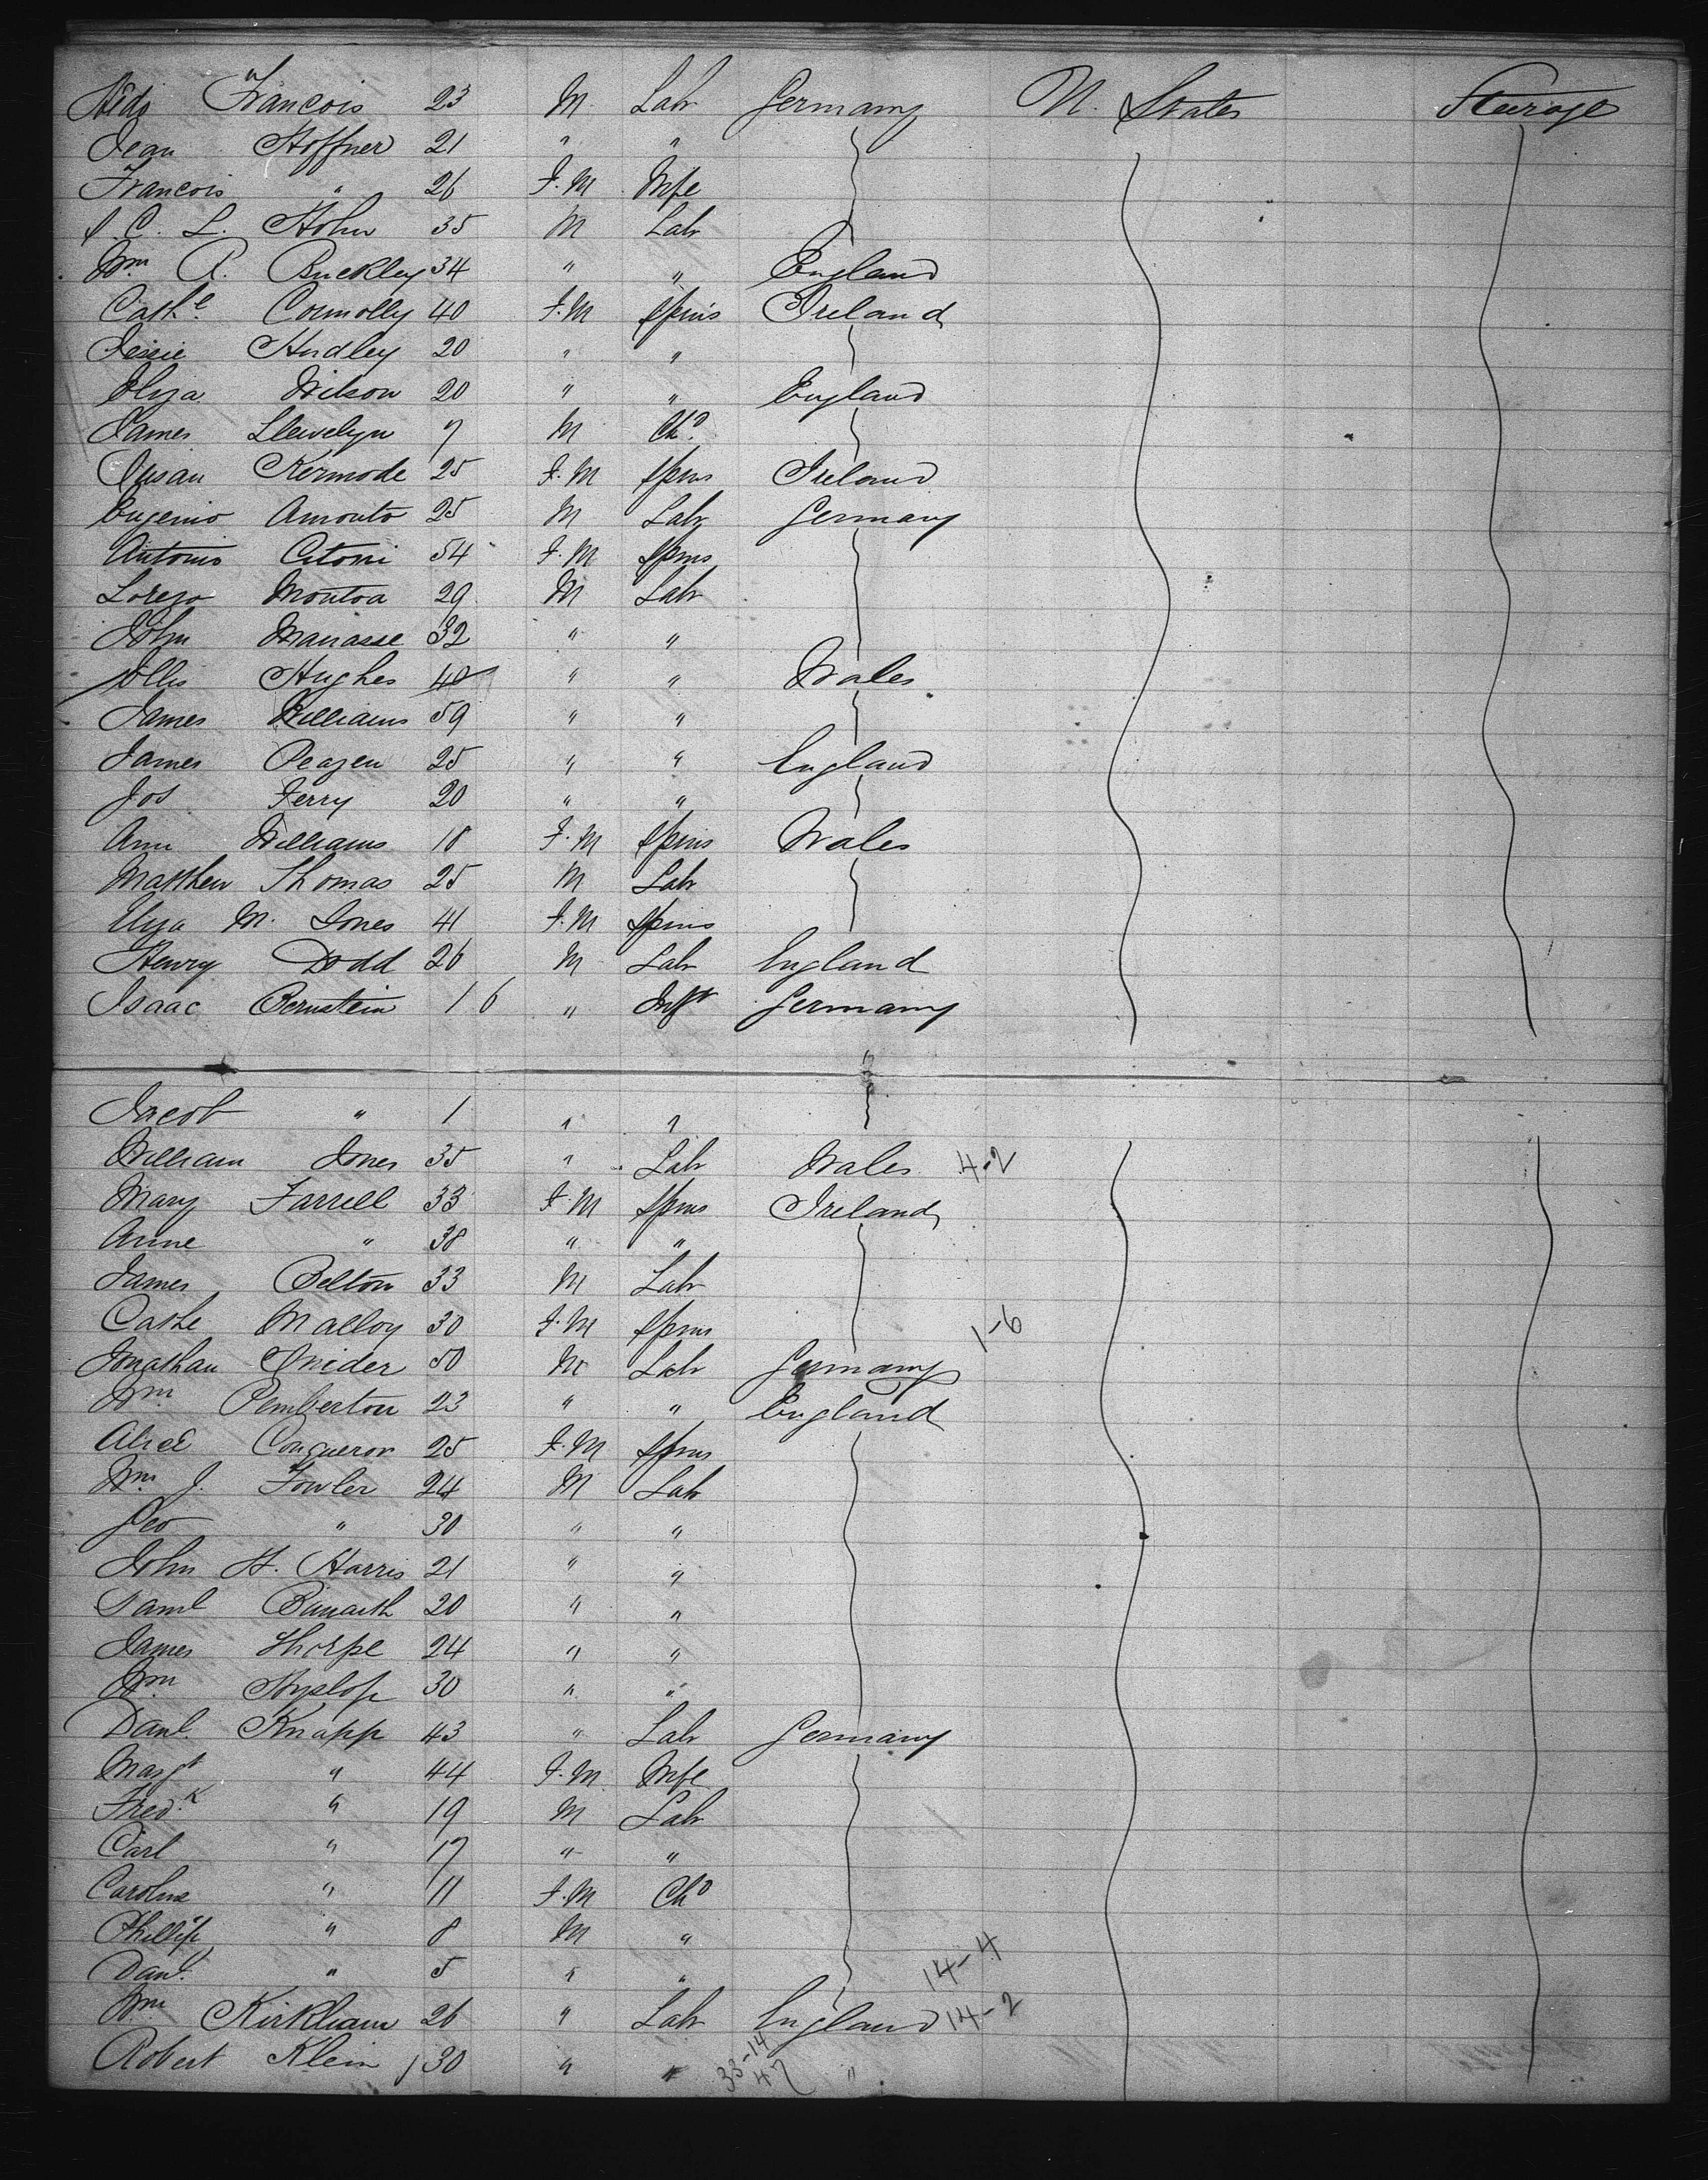 Francois 23 M. Lab Germany U. States Steerage
Jean Hoffner 21 " "
Francois " 26 F.M Wife
C. L. Hohn 35 M Lab
Wm A. Buckley 34 " " England
Cathe Connolly 40 F.M Spins Ireland
Jessie Hindley 20 " "
Eliza Wilson 20 " " England
James Llewelyn 7 M Chd
Susan Kermode 25 F.M Spins Ireland
Eugenio Amonto 25 M Lab Germany
Antonio Citoni 54 F.M Spins
Lorezo Montoa 29 M Lab
John Manasse 32 " "
Ellis Hughes 40 " " Wales
James Williams 59 " "
James Peazen 25 " " England
Jos Ferry 20 " "
Ann Williams 18 F.M Spins Wales
Matthew Thomas 25 M Lab
Eliza M. Jones 41 F.M Spins
Henry Dodd 26 M Lab England
Isaac Bernstein 1 6 " Inft Germany "
Jacob " 1 " "
William Jones 35 " Lab Wales 4-2
Mary Farrell 33 F.M Spins Ireland
Anne " 38 " "
James Belton 33 M Lab
Cathe Malloy 30 F.M Spins 1-6
Jonathan Snider 50 M Lab Germany
Wm Pemberton 23 " " England
Alice Conqueror 25 F.M Spins
Wm J. Fowler 24 M Lab
Geo " 30 " "
John H. Harris 21 " "
Saml 20 " "
James Thorpe 24 " "
Wm Hyslop 30 " "
Danl. Knapp 43 " Lab Germany
Margt " 44 F.M Wife
Fredk " 19 M Lab
Carl " 17 " "
Caroline " 11 F.M Chd
Phillip " 8 M "
Danl. " 5 " " 14-4
Wm Kirkham 26 " Lab England 14-2
Robert Klein 30 " " 33-14 "
47